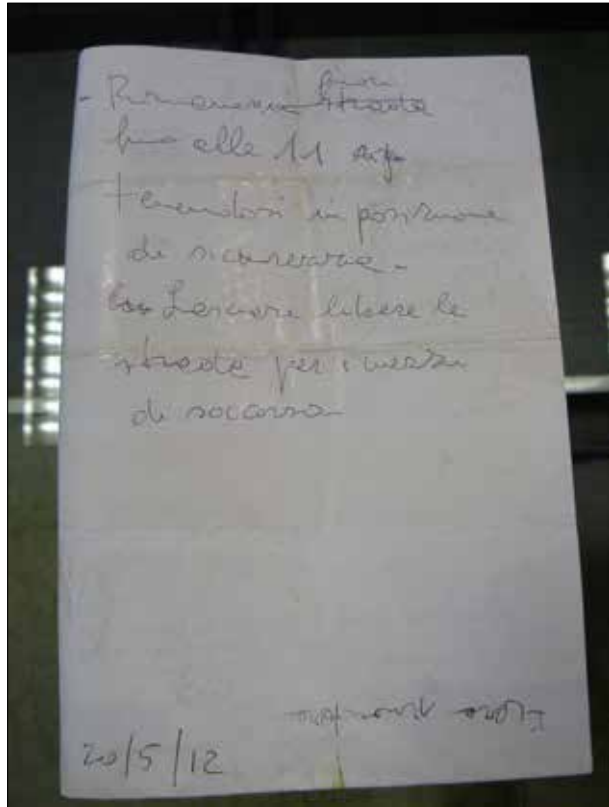 - Rimanere fuori strada
fino alle 11
tenendosi in posizione
di sicurezza -
Lasciare libere le
strade per i mezzi
di soccorso
20/5/12